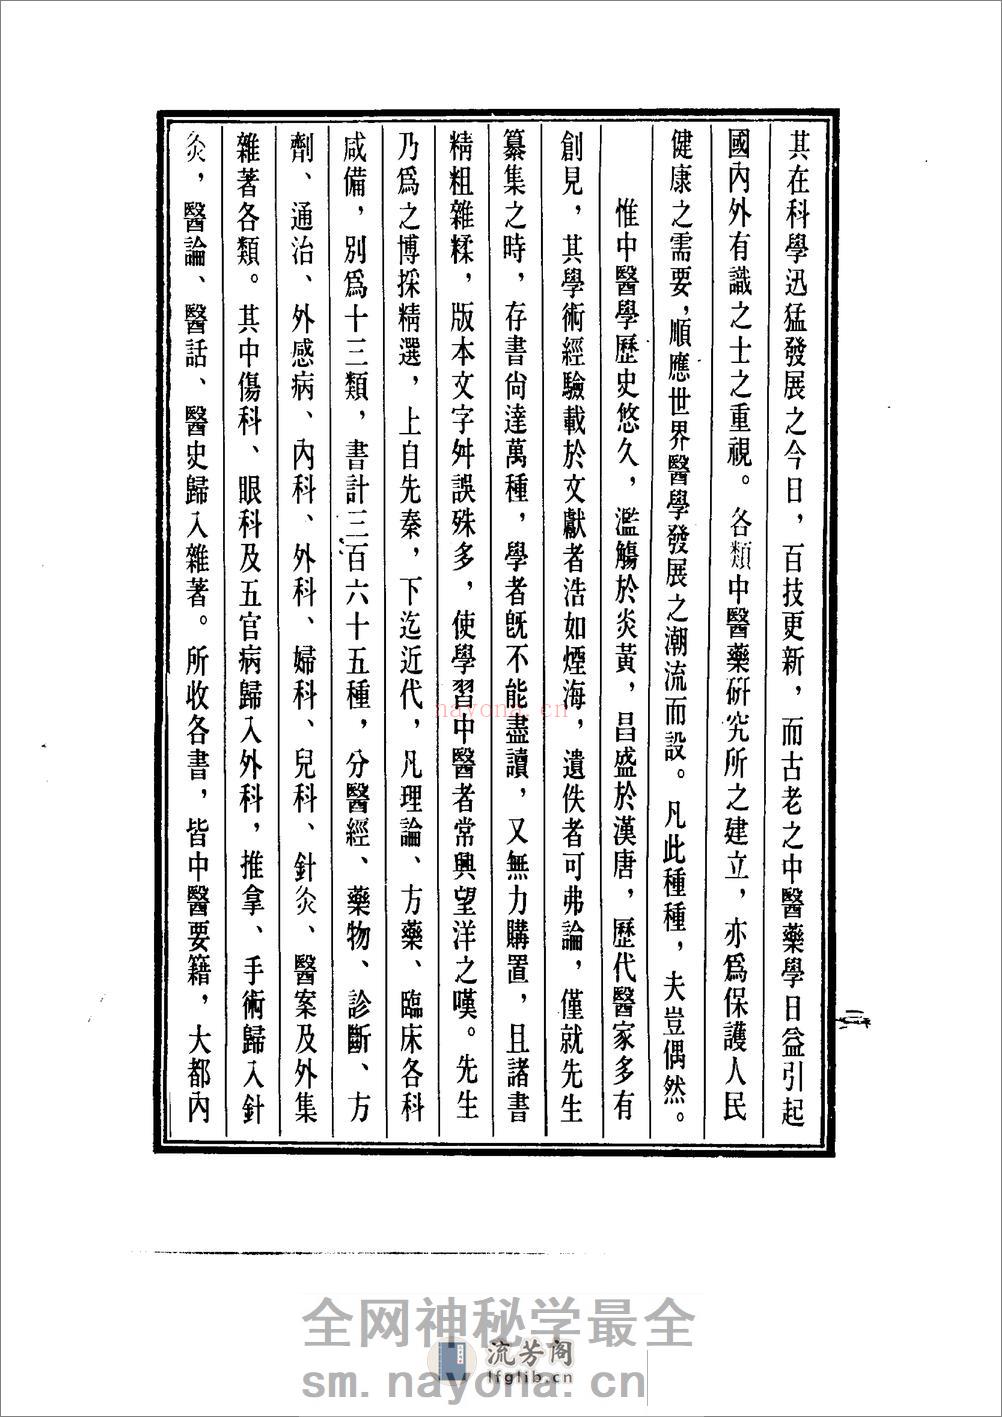 其在科學迅猛發展之今日，百技更新，而古老之中醫藥學日益引起
國內外有識之士之重視。各類中醫藥硏究所之建立，亦爲保護人民
健康之需要，順應世界醫學發展之潮流而設。凡此種種，夫豈偶然。
惟中醫學歷史悠久，濫觴於炎黃，昌盛於漢唐，歷代醫家多有
創見，其學術經驗載於文獻者浩如煙海，遺佚者可弗論，僅就先生
纂集之時，存書尙達萬種，學者旣不能盡讀，又無力購置，且諸書
精粗雜糅，版本文字舛誤殊多，使學習中醫者常興望洋之嘆。先生
乃爲之博採精選，上自先秦，下迄近代，凡理論、方藥、臨床各科
咸備，別爲十三類，書計三百六十五種，分醫經、藥物、診斷、方
劑、通治、外感病、內科、外科、婦科、兒科、針灸、醫案及外集
雜著各類。其中傷科、眼科及五官病歸入外科，推拿、手術歸入針
灸，醫論、醫話、醫史歸入雜著。所收各書，皆中醫要籍，大都內
二
nayona.cn
全网神秘学最全
流芳阁
lfglib.cn
sm.nayona.cn